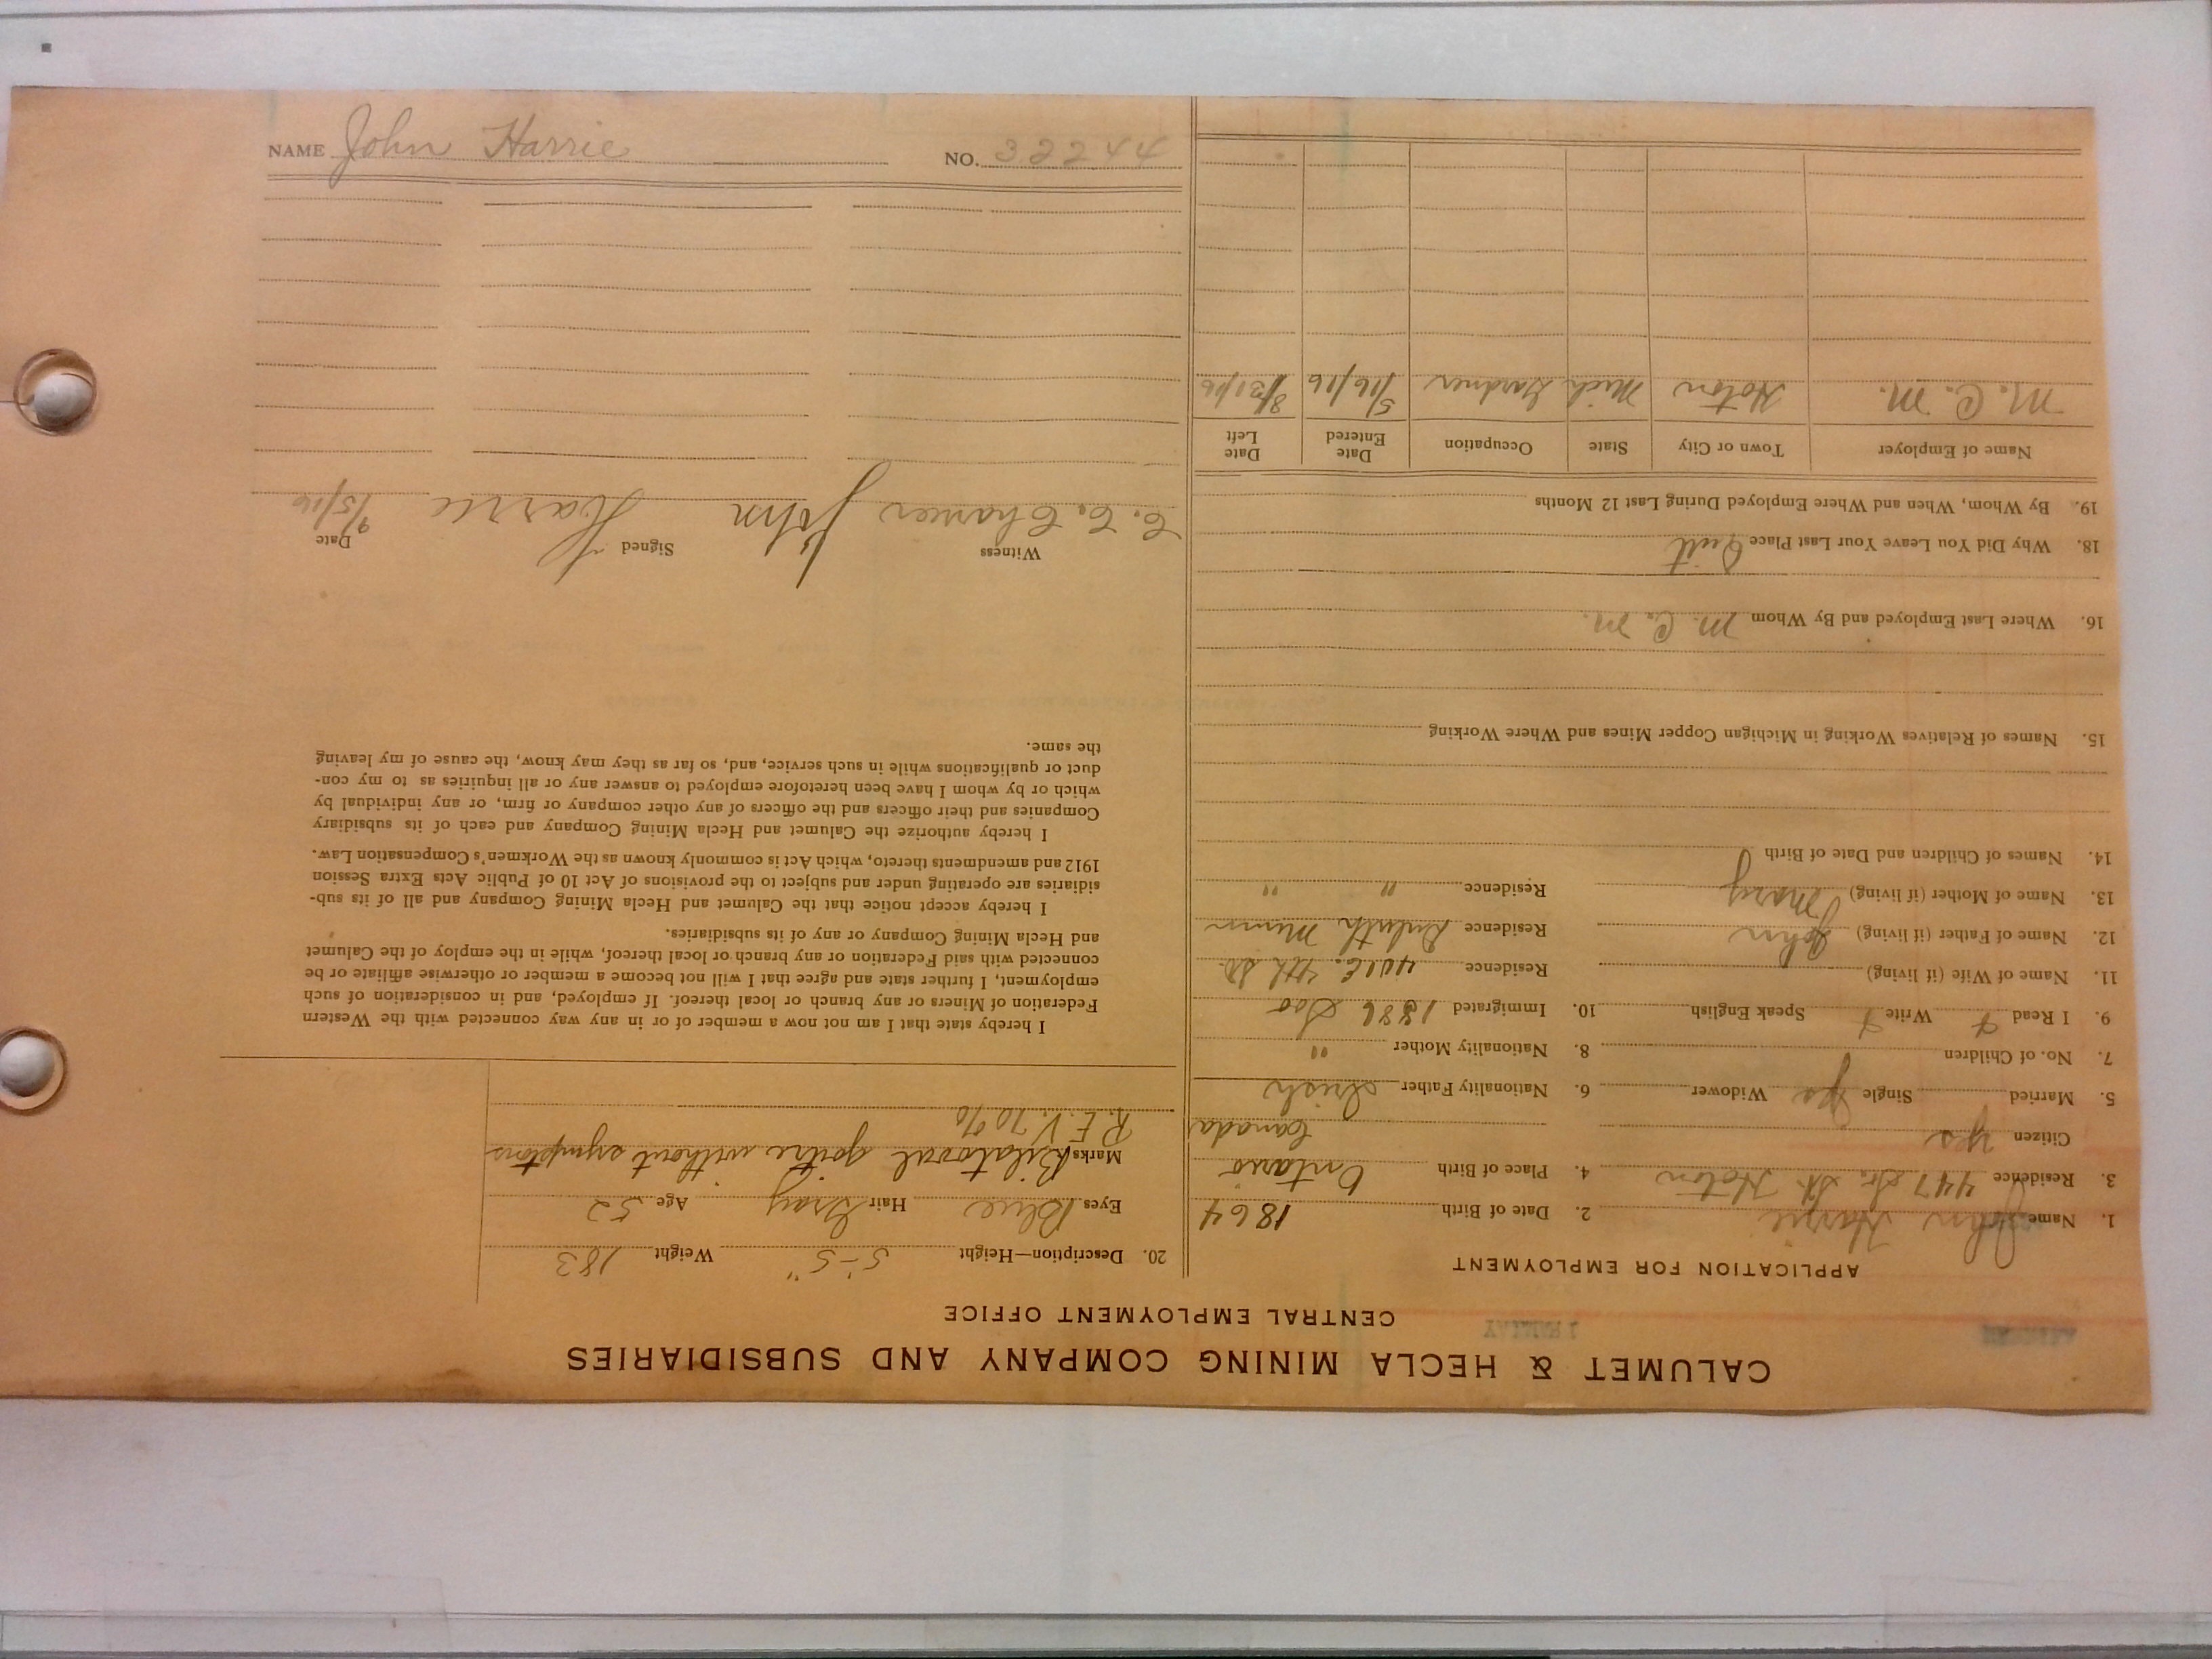 CALUMET & HECLA MINING COMPANY AND SUBSIDIARIES
CENTRAL EMPLOYMENT OFFICE
APPLICATION FOR EMPLOYMENT
1. Name John Harrie 2. Date of Birth 1864
3. Residence 447 St. Hoton 4. Place of Birth Ontario
Citizen yes Canada
5. Married Single yes Widower 6. Nationality Father Irish
7. No. of Children 8. Nationality Mother "
9. I Read Write Speak English 10. Immigrated 1886 Soo
11. Name of Wife (if living) Residence 401 E. 4th St.
12. Name of Father (if living) John Residence Duluth Minn
13. Name of Mother (if living) Mary Residence " "
14. Names of Children and Date of Birth
15. Names of Relatives Working in Michigan Copper Mines and Where Working
16. Where Last Employed and By Whom M. C. M.
18. Why Did You Leave Your Last Place Quit
19. By Whom, When and Where Employed During Last 12 Months
Name of Employer Town or City State Occupation Date Entered Date Left
M. C. M. Hoton Mich Gardner 5/16/16 8/31/16
20. Description—Height 5'-5" Weight 183
Eyes Blue Hair Gray Age 52
Marks Bilateral goitre without symptoms
R. E. V. 70%
I hereby state that I am not now a member of or in any way connected with the Western
Federation of Miners or any branch or local thereof. If employed, and in consideration of such
employment, I further state and agree that I will not become a member or otherwise affiliate or be
connected with said Federation or any branch or local thereof, while in the employ of the Calumet
and Hecla Mining Company or any of its subsidiaries.
I hereby accept notice that the Calumet and Hecla Mining Company and all of its sub-
sidiaries are operating under and subject to the provisions of Act 10 of Public Acts Extra Session
1912 and amendments thereto, which Act is commonly known as the Workmen's Compensation Law.
I hereby authorize the Calumet and Hecla Mining Company and each of its subsidiary
Companies and their officers and the officers of any other company or firm, or any individual by
which or by whom I have been heretofore employed to answer any or all inquiries as to my con-
duct or qualifications while in such service, and, so far as they may know, the cause of my leaving
the same.
Witness Signed Date
John Harrie 9/5/16
NAME John Harrie NO. 32244